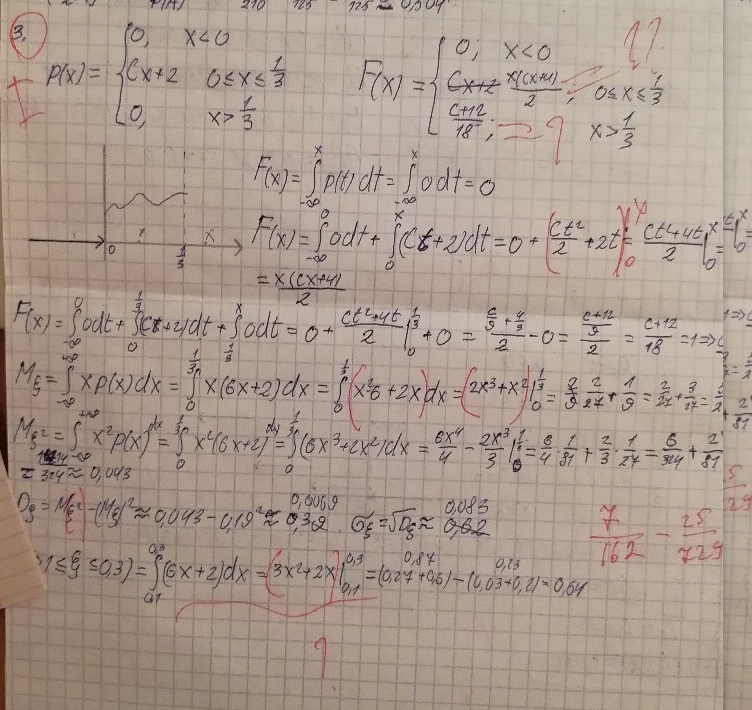 3.
p(x) = { 0, x<0
Cx+2 0≤x≤1/3
0, x>1/3
F(x) = { 0; x<0
x(Cx+4)/2, 0≤x≤1/3
(C+12)/18; x>1/3
!?
= ?
0 1/3 x
F(x) = ∫_{-∞}^{x} p(t)dt = ∫_{-∞}^{x} 0dt = 0
F(x) = ∫_{-∞}^{0} 0dt + ∫_{0}^{x} (Ct+2)dt = 0 + (Ct²/2 + 2t)|_{0}^{x} = (Ct²+4t)/2 |_{0}^{x} =
= x(Cx+4)/2
F(x) = ∫_{-∞}^{0} 0dt + ∫_{0}^{1/3} (Ct+2)dt + ∫_{1/3}^{x} 0dt = 0 + (Ct²+4t)/2 |_{0}^{1/3} + 0 = (C/9 + 4/3)/2 - 0 = ((C+12)/9)/2 = (C+12)/18 = 1 ⇒
Mξ = ∫_{-∞}^{+∞} xp(x)dx = ∫_{0}^{1/3} x(6x+2)dx = ∫_{0}^{1/3} (x²6+2x)dx = (2x³+x²)|_{0}^{1/3} = 2/27 + 1/9 = 2/27 + 3/27 =
Mξ² = ∫_{-∞}^{+∞} x²p(x)dx = ∫_{0}^{1/3} x²(6x+2)dx = ∫_{0}^{1/3} (6x³+2x²)dx = 6x⁴/4 - 2x³/3 |_{0}^{1/3} = 6/4 · 1/81 + 2/3 · 1/27 = 6/324 + 2/81
= 14/324 ≈ 0,043
Dξ = Mξ² - (Mξ)² ≈ 0,043 - 0,19² ≈ 0,0069 σξ = √Dξ ≈ 0,083
7/162 - 25/729
1≤ξ≤0,3) = ∫_{0,1}^{0,3} (6x+2)dx = (3x²+2x)|_{0,1}^{0,3} = (0,27+0,6) - (0,03+0,2) = 0,64
0,87 0,23
?